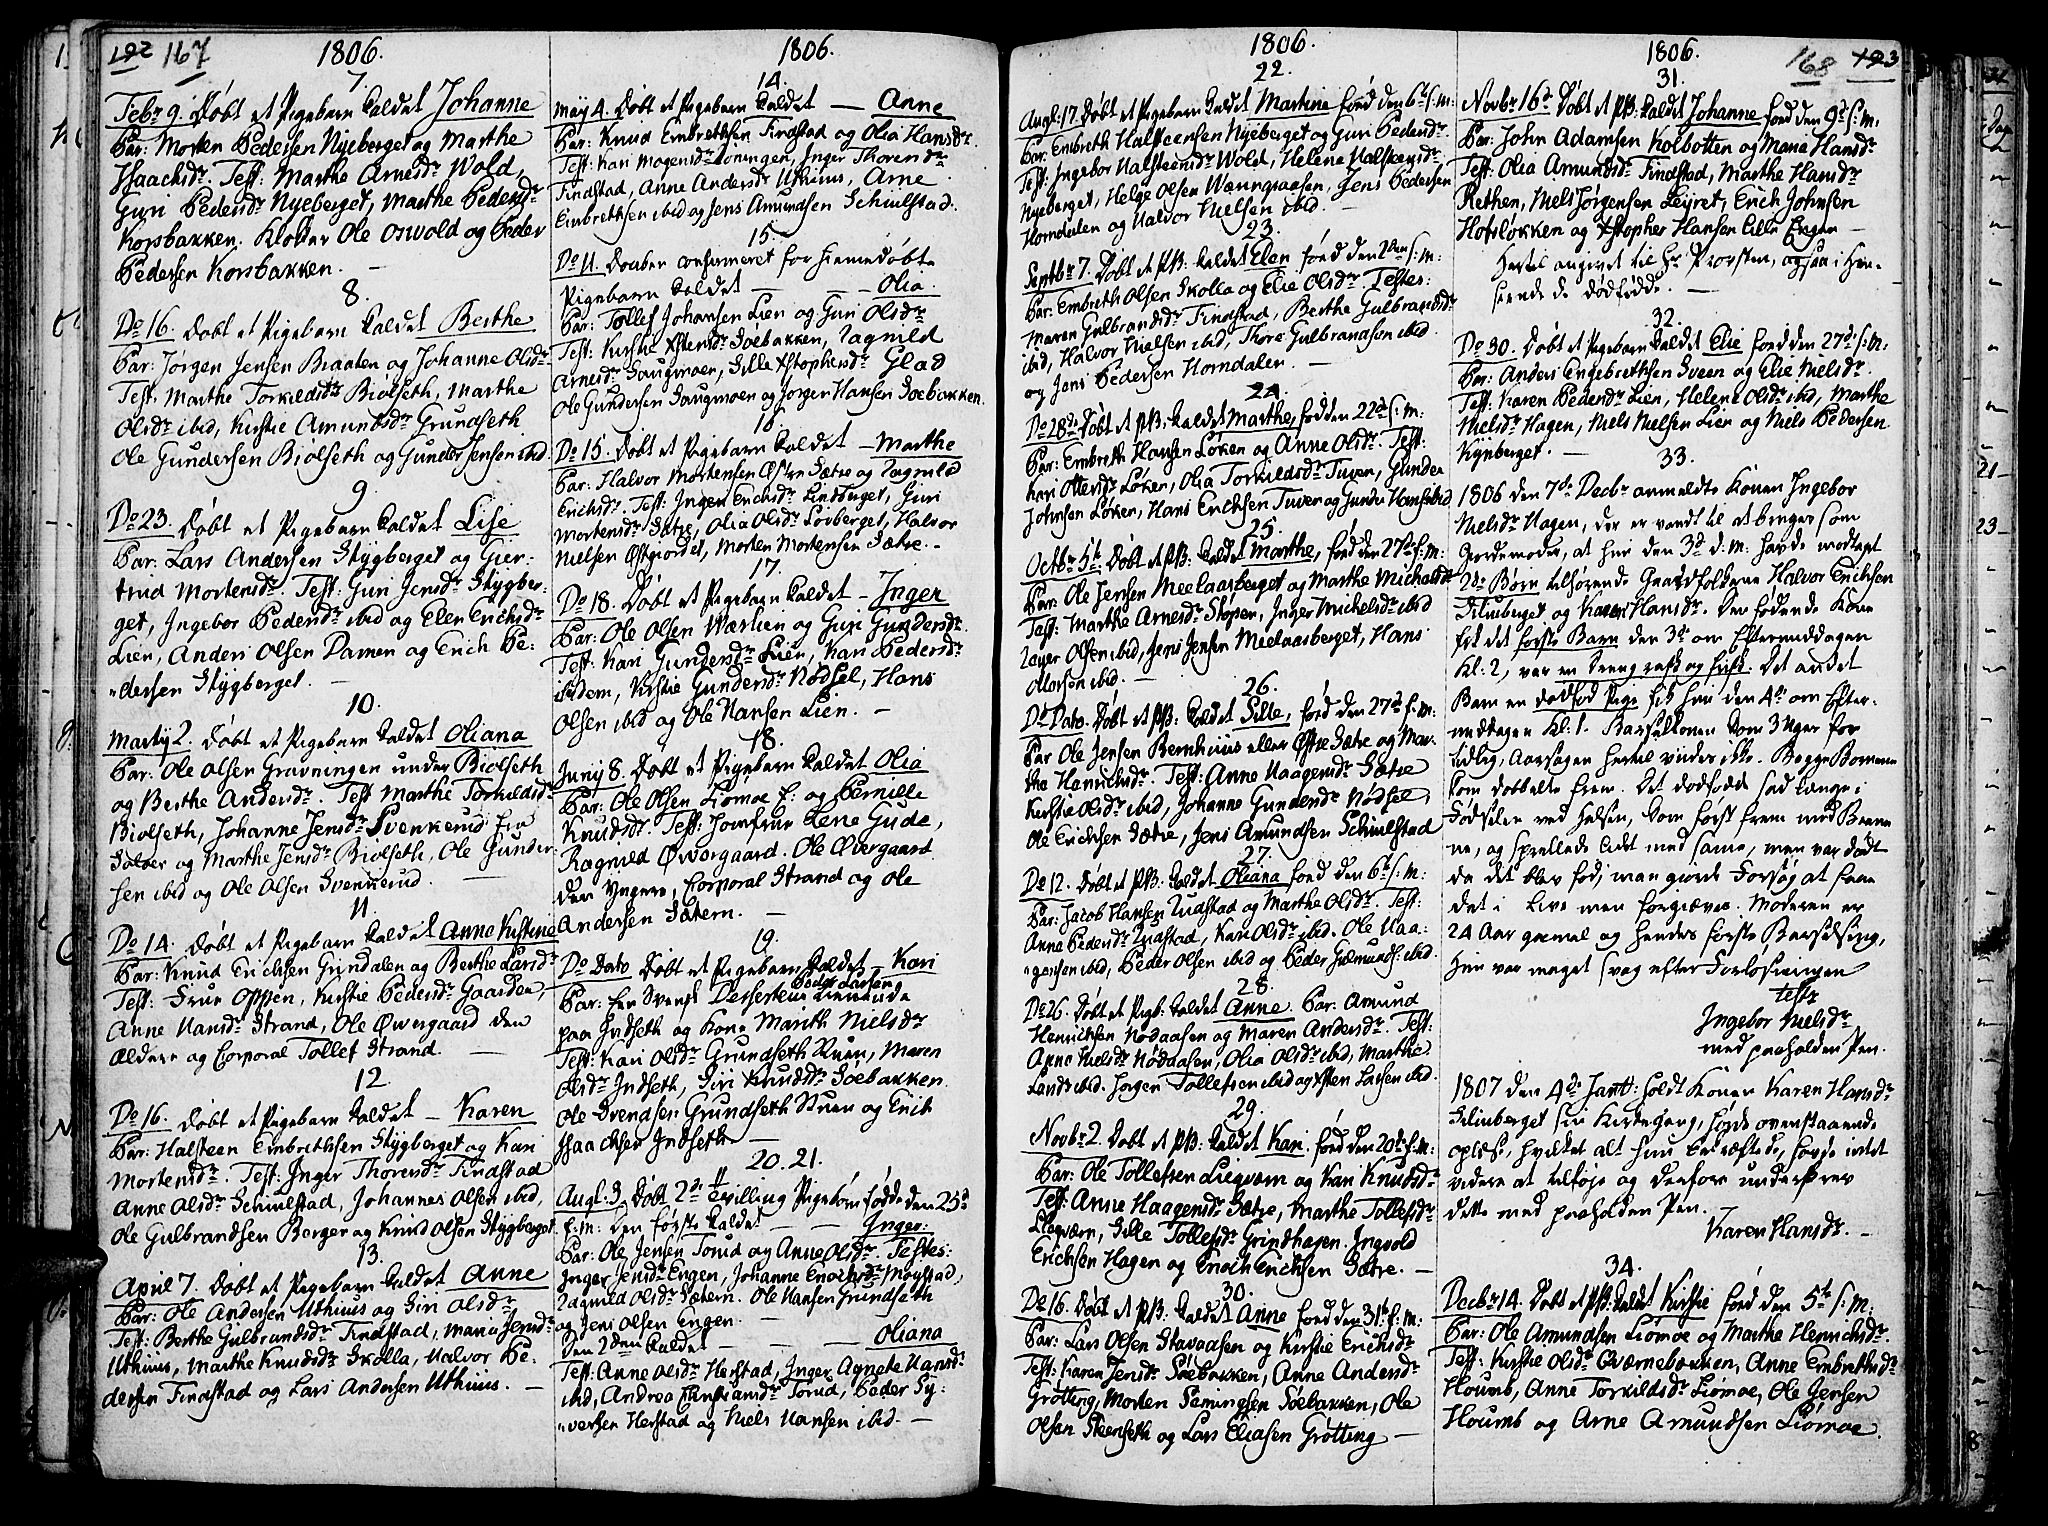 192 167
1806.
7.
Febr 9. Døbt et Pigebarn kaldet Johanne
Par: Morten Pedersen Nyeberget og Marthe
Isaachsdr. Test: Marthe Arnesdr Wold,
Guri Pedersdr Nyeberget, Marthe Pedersdr
Korsbakken. Klokker Ole Oswold og Peder
Pedersen Korsbakken. —
8.
Do 16. Døbt et Pigebarn kaldet Berthe
Par: Jørgen Jensen Braaten og Johanne Olsdr
Test. Marthe Torkildsdr Biølseth, Marthe
Olsdr ibid, Kirstie Amundsdr Grundseth
Ole Gundersen Biølseth og Gunder Jensen ibid
9.
Do 23. Døbt et Pigebarn kaldet Lise
Par: Lars Andersen Stygberget og Gier-
trud Mortensdr. Test: Guri Jensdr Stygber-
get, Ingebor Pedersdr ibid og Elen Erichsdr
Lien, Anders Olsen Damen og Erich Pe-
dersen Stygberget. —
10.
Martij 2. Døbt et Pigebarn kaldet Oliana
Par: Ole Olsen Gravningen under Biølseth
og Berthe Andersdr. Test Marthe Torkildsdr
Biølseth, Johanne Jensdr Svenkerud
og Marthe Jensdr Biølseth, Ole Gunder
sen ibid og Ole Olsen Svenkerud. —
11.
Do 14. Døbt et Pigebarn kaldet Anne Kirstine
Par: Knud Erichsen Grindalen og Berthe Larsdr
Test: Frue Oppen, Kirstie Pedersdr Gaarder,
Anne Hansdr Strand, Ole Øwergaard den
ældere og Corporal Tollef Strand. —
12
Do 16. Døbt et Pigebarn kaldet — Karen
Par: Halsteen Embrethsen Stygberget og Kari
Mortensdr. Test: Inger Thoresdr Findstad
Anne Olsdr Schiulstad, Johannes Olsen ibid,
Ole Gulbrandsen Berger og Knud Olsen Stygberget.
13.
April 7. Døbt et Pigebarn kaldet Anne
Par: Ole Andersen Uthuus og Siri Olsdr
Test: Berthe Gulbrandsdr Findstad, Maria Jensdr
Uthuus, Marthe Knudsdr Skolla, Halvor Pe-
dersen Findstad og Lars Andersen Uthuus. —
1806.
14.
Maij 4. Døbt et Pigebarn kaldet — Anne
Par: Knud Embrethsen Findstad og Olia Hansdr.
Test: Kari Mogensdr Loningen, Inger Thoresdr
Findstad, Anne Andersdr Uthuus, Arne
Embrethsen ibid og Jens Amundsen Schiulstad.
15.
Do 11. Daaben confirmeret for hiemedøbte
Pigebarn kaldet — — Olia.
Par: Tollef Johansen Lien og Guri Olsdr
Test: Kirstie Xstensdr Søebakken, Ragnild
Arnesdr Saugmoen, Sille Xstophersdr Glad
Ole Gundersen Saugmoen og Jørgen Hansen Søebakken.
16
Do 15. Døbt et Pigebarn kaldet — Marthe
Par: Halvor Mortensen Østre Sætre og Ragnild
Erichsdr. Test: Inger Erichsdr Lindberget, Guri
Mortensdr Sætre, Olia Olsdr Løvberget, Halvor
Nielsen Østgiordet, Morten Mortensen Sætre. —
17.
Do 18. Døbt et Pigebarn kaldet — Inger
Par: Ole Olsen Wærlien og Guri Gundersdr.
Test: Kari Gundersdr Lien, Kari Pedersdr
ibidem, Kirstie Gundersdr Nødsel, Hans
Olsen ibid og Ole Hansen Lien. —
18.
Junij 8. Døbt et Pigebarn kaldet Olia
Par: Ole Olsen Liømoe og Pernille
Knudsdr. Test: Jomfrue Lene Gude,
Ragnild Øwergaard. Ole Øvergaard
den Yngere, Corporal Strand og Ole
Andersen Sætern. —
19.
Do Dato Døbt et Pigebarn kaldet — Kari
Peder Larsen
Par: En Svensk Deserteur
paa Indseth og Kone Marith Nielsdr
Test: Kari Olsdr Grundseth Ruen, Maren
Olsdr Indseth, Siri Knudsdr Søebakken
Ole Svendsen Grundseth Stuen og Erich
Isaachsen Indseth —
20. 21.
Aug: 3. Døbt 2de Tvilling Pigebørn fødde den 25de
f: m: Den første kaldet — — Inger:
Par: Ole Jensen Torud og Anne Olsdr. Testes:
Inger Jensdr Engen, Johanne Enochsdr Moystad,
Ragnild Olsdr Sætern. Ole Hansen Grundseth
og Jens Olsen Engen. —
Den 2den kaldet — — Oliana
Test: Anne Olsdr Herstad, Inger Agnete Hansdr
ibid, Andrea Christiansdr Torud, Peder Sy-
versen Herstad og Niels Hansen ibid. —
1806.
22.
Aug: 17. Døbt et Pigebarn kaldet Martine fød den 6te s: m:
Par: Embreth Halsteensen Nyeberget og Guri Pedersdr.
Test: Ingebor Halsteensdr Wold, Helene Halsteensdr
Nyeberget, Helge Olsen Wænngaasen, Jens Pedersen
Horndalen og Halvor Nielsen ibid. —
23.
Septbr 7. Døbt et PB: kaldet Elen fød den 2den s: m:
Par: Embreth Olsen Skolla og Elie Olsdr. Testes:
Maren Gulbrandsdr Findstad, Berthe Gulbrandsdr
ibid, Halvor Nielsen ibid, Thore Gulbrandsen ibid
og Jens Pedersen Horndalen. —
24.
Do 28de Døbt et PB: kaldet Marthe, fød den 22de s: m:
Par: Embreth Hansen Løken og Anne Olsdr. Test:
Kari Ottersdr Løken, Olia Torkildsdr Tuven, Gunder
Johnsen Løken, Hans Erichsen Tuven og Gunder Hans ibid
25.
Octbr 5te Døbt et PB: kaldet Marthe, fød den 27de f: m:
Par: Ole Jensen Meelaasberget og Marthe Michelsdr
Test: Marthe Arnesdr Stopen, Inger Michelsdr ibid
Olsen ibid, Jens Jensen Meelaasberget, Hans
Olorsen ibid. —
26.
Do Dato. Døbt et PB: kaldet Sille, fød den 27de f: m:
Par Ole Jensen Bernhuus eller Østre Sætre og Mar-
the Henrichsdr. Test: Anne Haagensdr Sætre
Kirstie Olsdr ibid, Johanne Gundersdr Nødsel,
Ole Erichsen Sætre, Jens Amundsen Schiulstad
27.
Do 12. Døbt et PB: kaldet Oliana fød den 6te s: m:
Par: Jacob Hansen Rudstad og Marthe Olsdr. Test:
Anne Pedersdr Rudstad, Kari Olsdr ibid. Ole Haa-
gensen ibid, Peder Olsen ibid og Peder Gulmunds: ibid.
28.
Do 26. Døbt et Pigb: kaldet Anne Par: Amund
Henrichsen Nødaasen og Maren Andersdr. Test:
Anne Nielsdr Nødaasen, Olia Olsdr ibid, Marthe
Larsdr ibid. Jørgen Tollefsen ibid og Xsten Larsen ibid.
29.
Novbr 2. Døbt et PB: kaldet Kari fød den 20de f: m:
Par: Ole Tollefsen Liegværn og Kari Knudsdr
Test: Anne Haagensdr Sætre, Marthe Tollefsdr
Liegværn, Sille Tollefsdr Grindhagen. Ingvold
Erichsen Hagen og Enoch Erichsen Sætre. —
30.
Do 16. Døbt et PB: kaldet Anne fød den 31te f: m:
Par: Lars Olsen Stavaasen og Kirstie Erichsdr
Test: Karen Jensdr Søebakken, Anne Andersdr
Grøtting, Morten Semingsen Søebakken, Ole
Olsen Steenseth og Lars Eliasen Grøtting —
1806.
168 193
31.
Novbr 16de Døbt et PB: kaldet Johanne fød den 9de s: m.
Par: John Adamsen Kolbotten og Marie Hansdr
Test: Olia Amundsdr Findstad, Marthe Hansdr
Rethen, Niels Jørgensen Leyret, Erich Johnsen
Hofsløkken og Xstopher Hansen Lille Engen —
Hertil angivet til Hr Provsten, ogsaa i Hen-
seende de dødfødde. —
32.
Do 30. Døbt et Pigebarn kaldet Elie fød den 27de s: m:
Par: Anders Engebrethsen Sveen og Elie Nielsdr.
Test: Karen Pedersdr Lien, Helene Olsdr ibid, Marthe
Nielsdr Hagen, Niels Nielsen Lien og Niels Pedersen
Kynberget. —
33.
1806 den 7de Decbr anmeldte Konen Ingebor
Nielsdr Hagen, der er vandt til at bruges som
Giordemoder, at hun den 3de d: m: havde modtaget
2de Børn tilhørende Gaardfolkene Halvor Erichsen
Silliuberget og Karen Hansdr. Den fødende Kone
fik det første Barn den 3de om Eftermiddagen
Kl: 2, var en Dreng rask og frisk. Det andet
Barn en dødfød Pige fik hun den 4de om Efter-
middagen Kl: 1. Barselkonen kom 3 Uger for
tidlig, Aarsagen hertil vides ikke. Begge Børnene
kom dobbelte frem. Det dødfødde sad længe i
Fødselen ved Halsen, kom først frem med Benene
ne, og sprellede lidt med samme, men var dødt
da det blev fød, man giorde Forsøg at faae
det i Live men forgiæves. Moderen er
24 Aar gammel og hendes første Barselseng,
hun var meget svag efter Forløsningen
testr
Ingebor Nielsdr
med paaholden Pen.
1807 den 4de Janv: holdt Konen Karen Hansdr
Silliuberget sin Kirkegang, hørde ovenstaaende
oplæse, hvilket alt hun bekræftede, havde intet
videre at tilføje og derfore underskrev
dette med paaholden Pen.
Karen Hansdr. —
34.
Decbr 14. Døbt et PB: kaldet Kirstie fød den 5te s: m:
Par: Ole Amundsen Liømoe og Marthe Henrichsdr.
Test: Kirstie Olsdr Qværnebækken, Anne Embrethsdr
Houmb, Anne Torkildsdr Liømoe, Ole Jensen
Houmb og Arne Amundsen Liømoe.